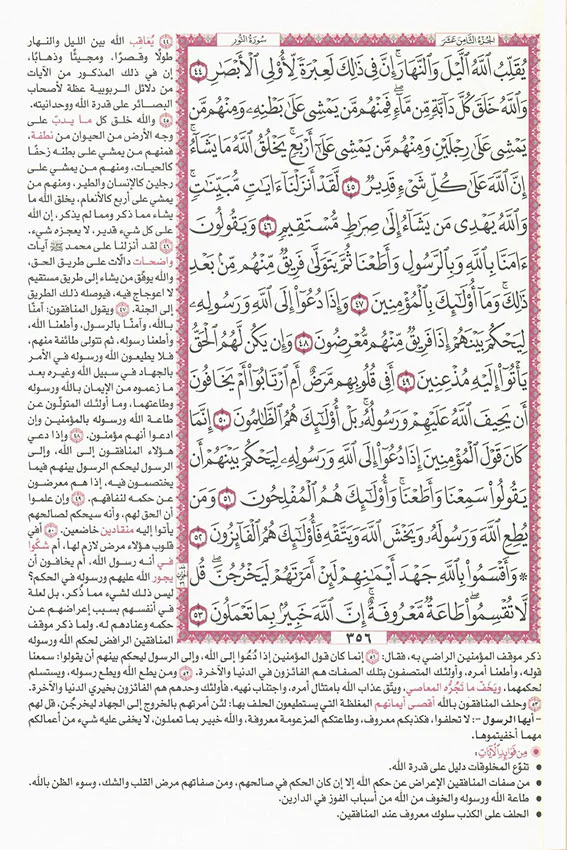 الجزء الثامن عشر
سورة النور
يُقَلِّبُ ٱللَّهُ ٱلَّيْلَ وَٱلنَّهَارَ إِنَّ فِى ذَٰلِكَ لَعِبْرَةً لِّأُو۟لِى ٱلْأَبْصَٰرِ ٤٤
وَٱللَّهُ خَلَقَ كُلَّ دَآبَّةٍ مِّن مَّآءٍ فَمِنْهُم مَّن يَمْشِى عَلَىٰ بَطْنِهِۦ وَمِنْهُم مَّن
يَمْشِى عَلَىٰ رِجْلَيْنِ وَمِنْهُم مَّن يَمْشِى عَلَىٰٓ أَرْبَعٍ يَخْلُقُ ٱللَّهُ مَا يَشَآءُ
إِنَّ ٱللَّهَ عَلَىٰ كُلِّ شَىْءٍ قَدِيرٌ ٤٥ لَّقَدْ أَنزَلْنَآ ءَايَٰتٍ مُّبَيِّنَٰتٍ
وَٱللَّهُ يَهْدِى مَن يَشَآءُ إِلَىٰ صِرَٰطٍ مُّسْتَقِيمٍ ٤٦ وَيَقُولُونَ
ءَامَنَّا بِٱللَّهِ وَبِٱلرَّسُولِ وَأَطَعْنَا ثُمَّ يَتَوَلَّىٰ فَرِيقٌ مِّنْهُم مِّنۢ بَعْدِ
ذَٰلِكَ وَمَآ أُو۟لَٰٓئِكَ بِٱلْمُؤْمِنِينَ ٤٧ وَإِذَا دُعُوٓا۟ إِلَى ٱللَّهِ وَرَسُولِهِۦ
لِيَحْكُمَ بَيْنَهُمْ إِذَا فَرِيقٌ مِّنْهُم مُّعْرِضُونَ ٤٨ وَإِن يَكُن لَّهُمُ ٱلْحَقُّ
يَأْتُوٓا۟ إِلَيْهِ مُذْعِنِينَ ٤٩ أَفِى قُلُوبِهِم مَّرَضٌ أَمِ ٱرْتَابُوٓا۟ أَمْ يَخَافُونَ
أَن يَحِيفَ ٱللَّهُ عَلَيْهِمْ وَرَسُولُهُۥ بَلْ أُو۟لَٰٓئِكَ هُمُ ٱلظَّٰلِمُونَ ٥٠ إِنَّمَا
كَانَ قَوْلَ ٱلْمُؤْمِنِينَ إِذَا دُعُوٓا۟ إِلَى ٱللَّهِ وَرَسُولِهِۦ لِيَحْكُمَ بَيْنَهُمْ أَن
يَقُولُوا۟ سَمِعْنَا وَأَطَعْنَا وَأُو۟لَٰٓئِكَ هُمُ ٱلْمُفْلِحُونَ ٥١ وَمَن
يُطِعِ ٱللَّهَ وَرَسُولَهُۥ وَيَخْشَ ٱللَّهَ وَيَتَّقْهِ فَأُو۟لَٰٓئِكَ هُمُ ٱلْفَآئِزُونَ ٥٢
* وَأَقْسَمُوا۟ بِٱللَّهِ جَهْدَ أَيْمَٰنِهِمْ لَئِنْ أَمَرْتَهُمْ لَيَخْرُجُنَّ قُل
لَّا تُقْسِمُوا۟ طَاعَةٌ مَّعْرُوفَةٌ إِنَّ ٱللَّهَ خَبِيرٌۢ بِمَا تَعْمَلُونَ ٥٣
٣٥٦
٤٤ يُعَاقِب الله بين الليل والنهار
طولًا وقصرًا، ومجيئًا وذهابًا،
إن في ذلك المذكور من الآيات
من دلائل الربوبية عظة لأصحاب
البصائر على قدرة الله ووحدانيته.
٤٥ والله خلق كل ما يدبّ على
وجه الأرض من الحيوان من نطفة،
فمنهم من يمشي على بطنه زحفًا
كالحيات، ومنهم من يمشي على
رجلين كالإنسان والطير، ومنهم من
يمشي على أربع كالأنعام، يخلق الله ما
يشاء مما ذكر ومما لم يذكر، إن الله
على كل شيء قدير، لا يعجزه شيء.
٤٦ لقد أنزلنا على محمد ﷺ آيات
واضحات دالّات على طريق الحق،
والله يوفّق من يشاء إلى طريق مستقيم
لا اعوجاج فيه، فيوصله ذلك الطريق
إلى الجنة. ٤٧ ويقول المنافقون: آمنَّا
بالله، وآمنَّا بالرسول، وأطعنا الله،
وأطعنا رسوله، ثم تتولى طائفة منهم،
فلا يطيعون الله ورسوله في الأمر
بالجهاد في سبيل الله وغيره بعد
ما زعموه من الإيمان بالله ورسوله
وطاعتهما، وما أولئك المتولّون عن
طاعة الله ورسوله بالمؤمنين وإن
ادعوا أنهم مؤمنون. ٤٨ وإذا دعي
هؤلاء المنافقون إلى الله، وإلى
الرسول ليحكم الرسول بينهم فيما
يختصمون فيه، إذا هم معرضون
عن حكمه لنفاقهم. ٤٩ وإن علموا
أن الحق لهم، وأنه سيحكم لصالحهم
يأتوا إليه منقادين خاضعين. ٥٠ أفي
قلوب هؤلاء مرض لازم لها، أم شكّوا
في أنه رسول الله، أم يخافون أن
يجور الله عليهم ورسوله في الحكم؟
ليس ذلك لشيء مما ذُكر، بل لعلة
في أنفسهم بسبب إعراضهم عن
حكمه وعنادهم له. ولما ذكر موقف
المنافقين الرافض لحكم الله ورسوله
ذكر موقف المؤمنين الراضي به، فقال: ٥١ إنما كان قول المؤمنين إذا دُعُوا إلى الله، وإلى الرسول ليحكم بينهم أن يقولوا: سمعنا
قوله، وأطعنا أمره، وأولئك المتصفون بتلك الصفات هم الفائزون في الدنيا والآخرة. ٥٢ ومن يطع الله ويطع رسوله، ويستسلم
لحكمهما، ويَخَفْ ما تَجُرُّه المعاصي، ويتَّق عذاب الله بامتثال أمره، واجتناب نهيه، فأولئك وحدهم هم الفائزون بخيري الدنيا والآخرة.
٥٣ وحلف المنافقون بالله أقصى أيمانهم المغلظة التي يستطيعون الحلف بها: لئن أمرتهم بالخروج إلى الجهاد ليخرجُن، قل لهم
- أيها الرسول -: لا تحلفوا، فكذبكم معروف، وطاعتكم المزعومة معروفة، والله خبير بما تعملون، لا يخفى عليه شيء من أعمالكم
مهما أخفيتموها.
من فوائد الآيات
• تنوّع المخلوقات دليل على قدرة الله.
• من صفات المنافقين الإعراض عن حكم الله إلا إن كان الحكم في صالحهم، ومن صفاتهم مرض القلب والشك، وسوء الظن بالله.
• طاعة الله ورسوله والخوف من الله من أسباب الفوز في الدارين.
• الحلف على الكذب سلوك معروف عند المنافقين.